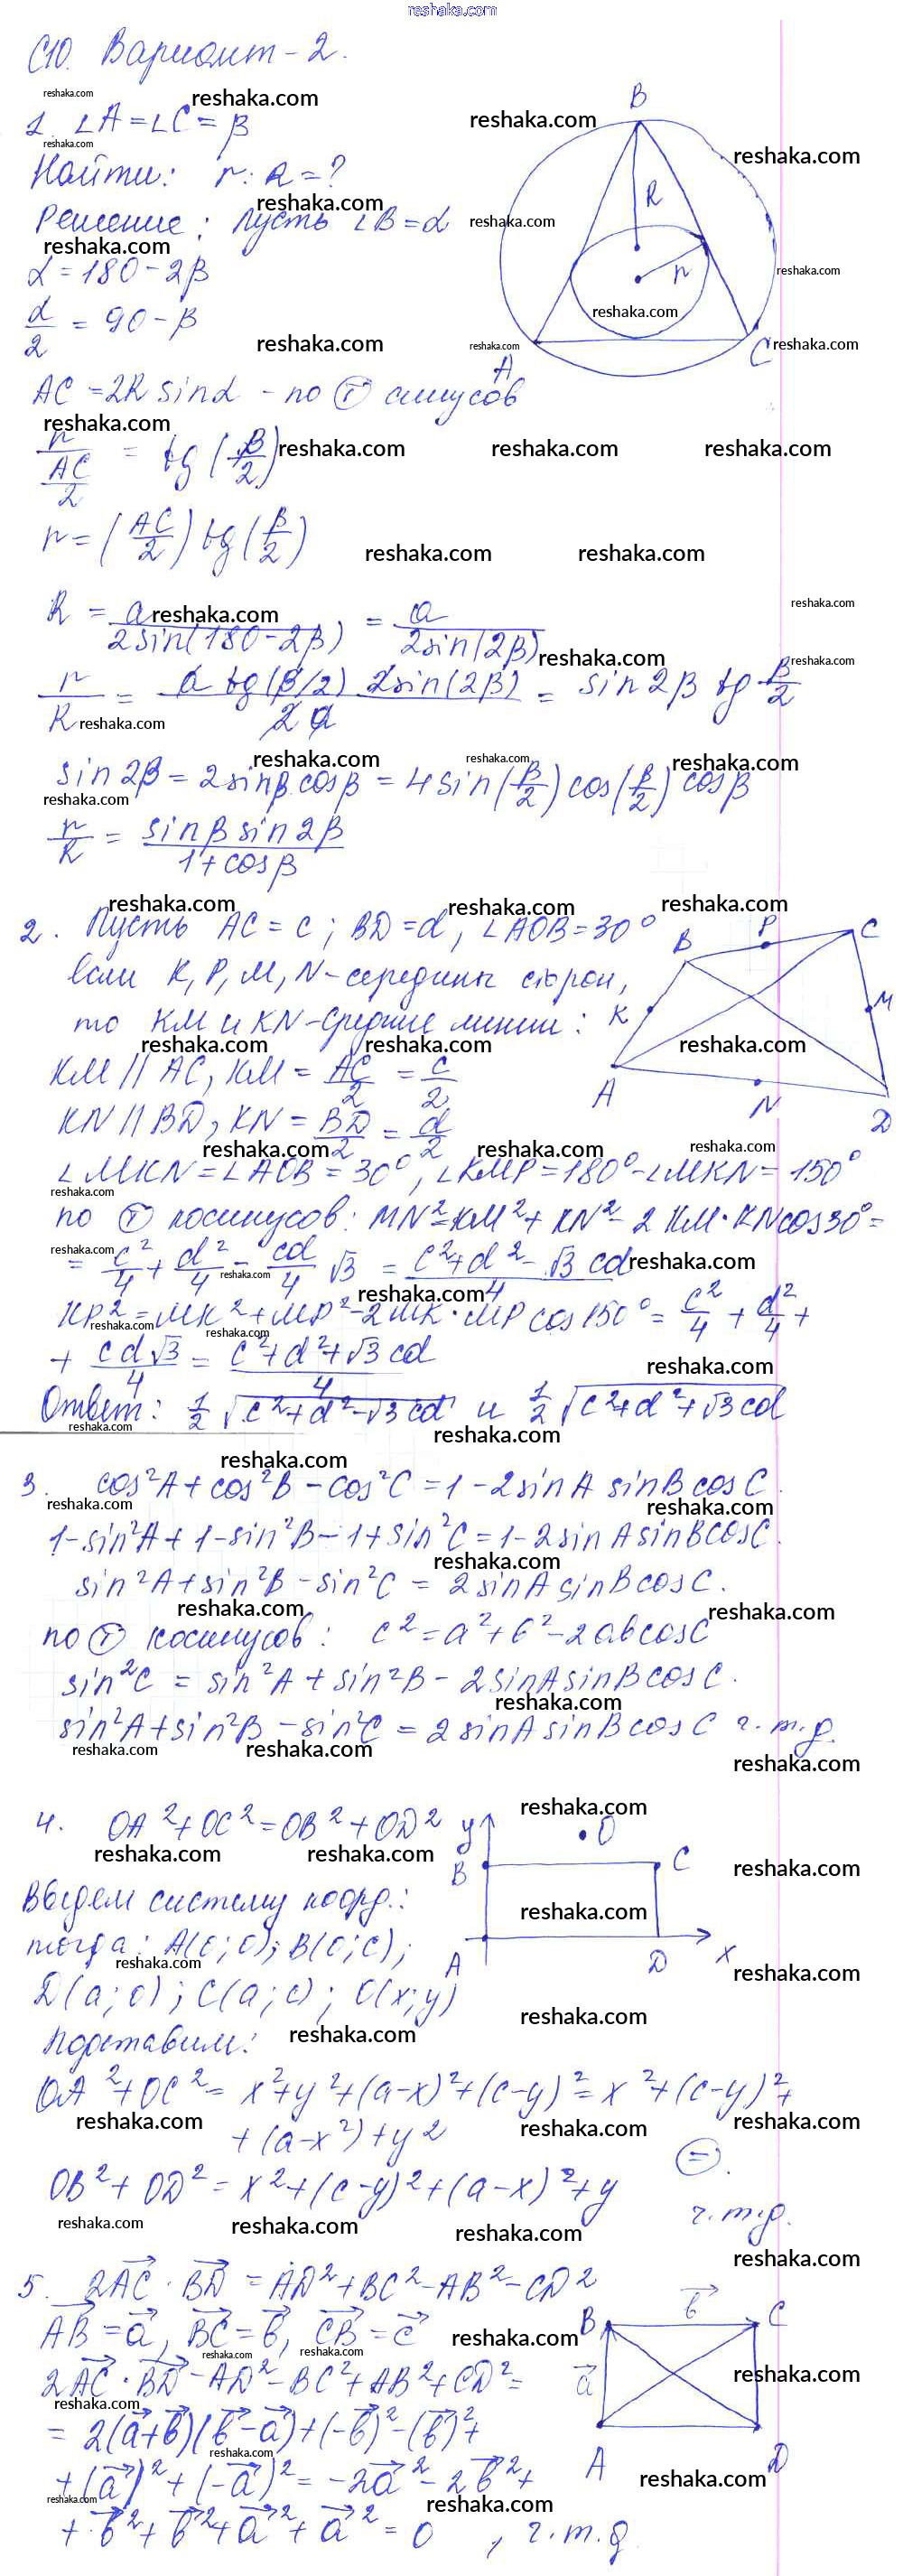 reshaka.com
С10. Вариант-2.
1. ∠A=∠C=β
Найти: r:R=?
Решение: пусть ∠B=α
α=180-2β
α/2 = 90-β
AC=2R sinα - по Ⓣ синусов
r/(AC/2) = tg(β/2)
r=(AC/2) tg(β/2)
R = a/(2sin(180-2β)) = a/(2sin(2β))
r/R = (a tg(β/2) 2sin(2β))/(2a) = sin2β tg β/2
sin2β=2sinβ cosβ=4sin(β/2)cos(β/2)cosβ
r/R = (sinβ sin2β)/(1+cosβ)
B
R
r
A
C
2. Пусть AC=c; BD=d, ∠AOB=30°
если K,P,M,N-середины сторон,
то KM и KN-средние линии:
KM//AC, KM=AC/2=c/2
KN//BD, KN=BD/2=d/2
∠MKN=∠AOB=30°, ∠KMP=180°-∠MKN=150°
по Ⓣ косинусов: MN²=KM²+KN²-2KM·KNcos30°=
= c²/4+d²/4-cd/4 √3 = (c²+d²-√3cd)/4
KP²=MK²+MP²-2MK·MP cos150°=c²/4+d²/4+
+ cd√3/4 = (c²+d²+√3cd)/4
Ответ: 1/2 √(c²+d²-√3cd) и 1/2 √(c²+d²+√3cd)
B P C
K M
A N D
3. cos²A+cos²B-cos²C=1-2sinA sinB cosC.
1-sin²A+1-sin²B-1+sin²C=1-2sinAsinBcosC.
sin²A+sin²B-sin²C=2sinAsinBcosC.
по Ⓣ косинусов: c²=a²+b²-2abcosC
sin²C=sin²A+sin²B-2sinAsinBcosC.
sin²A+sin²B-sin²C=2sinAsinBcosC ч.т.д.
4. OA²+OC²=OB²+OD²
Введем систему коорд.:
тогда: A(0;0); B(0;c);
D(a;0); C(a;c); O(x;y)
Подставим:
OA²+OC²=x²+y²+(a-x)²+(c-y)²=x²+(c-y)²+
+(a-x²)+y2
OB²+OD²=x²+(c-y)²+(a-x)²+y
⊜.
ч.т.д.
y
O
B
C
A
D
x
5. 2AC⃗·BD⃗=AD²+BC²-AB²-CD²
AB⃗=a⃗, BC⃗=b⃗, CB⃗=c⃗
2AC⃗·BD⃗-AD²-BC²+AB²+CD²=
=2(a⃗+b⃗)(b⃗-a⃗)+(-b⃗)²-(b⃗)²+
+(a⃗)²+(-a⃗)²=-2a⃗²-2b⃗²+
+b⃗²+b⃗²+a⃗²+a⃗²=0, ч.т.д
b⃗
B
C
a⃗
A
D